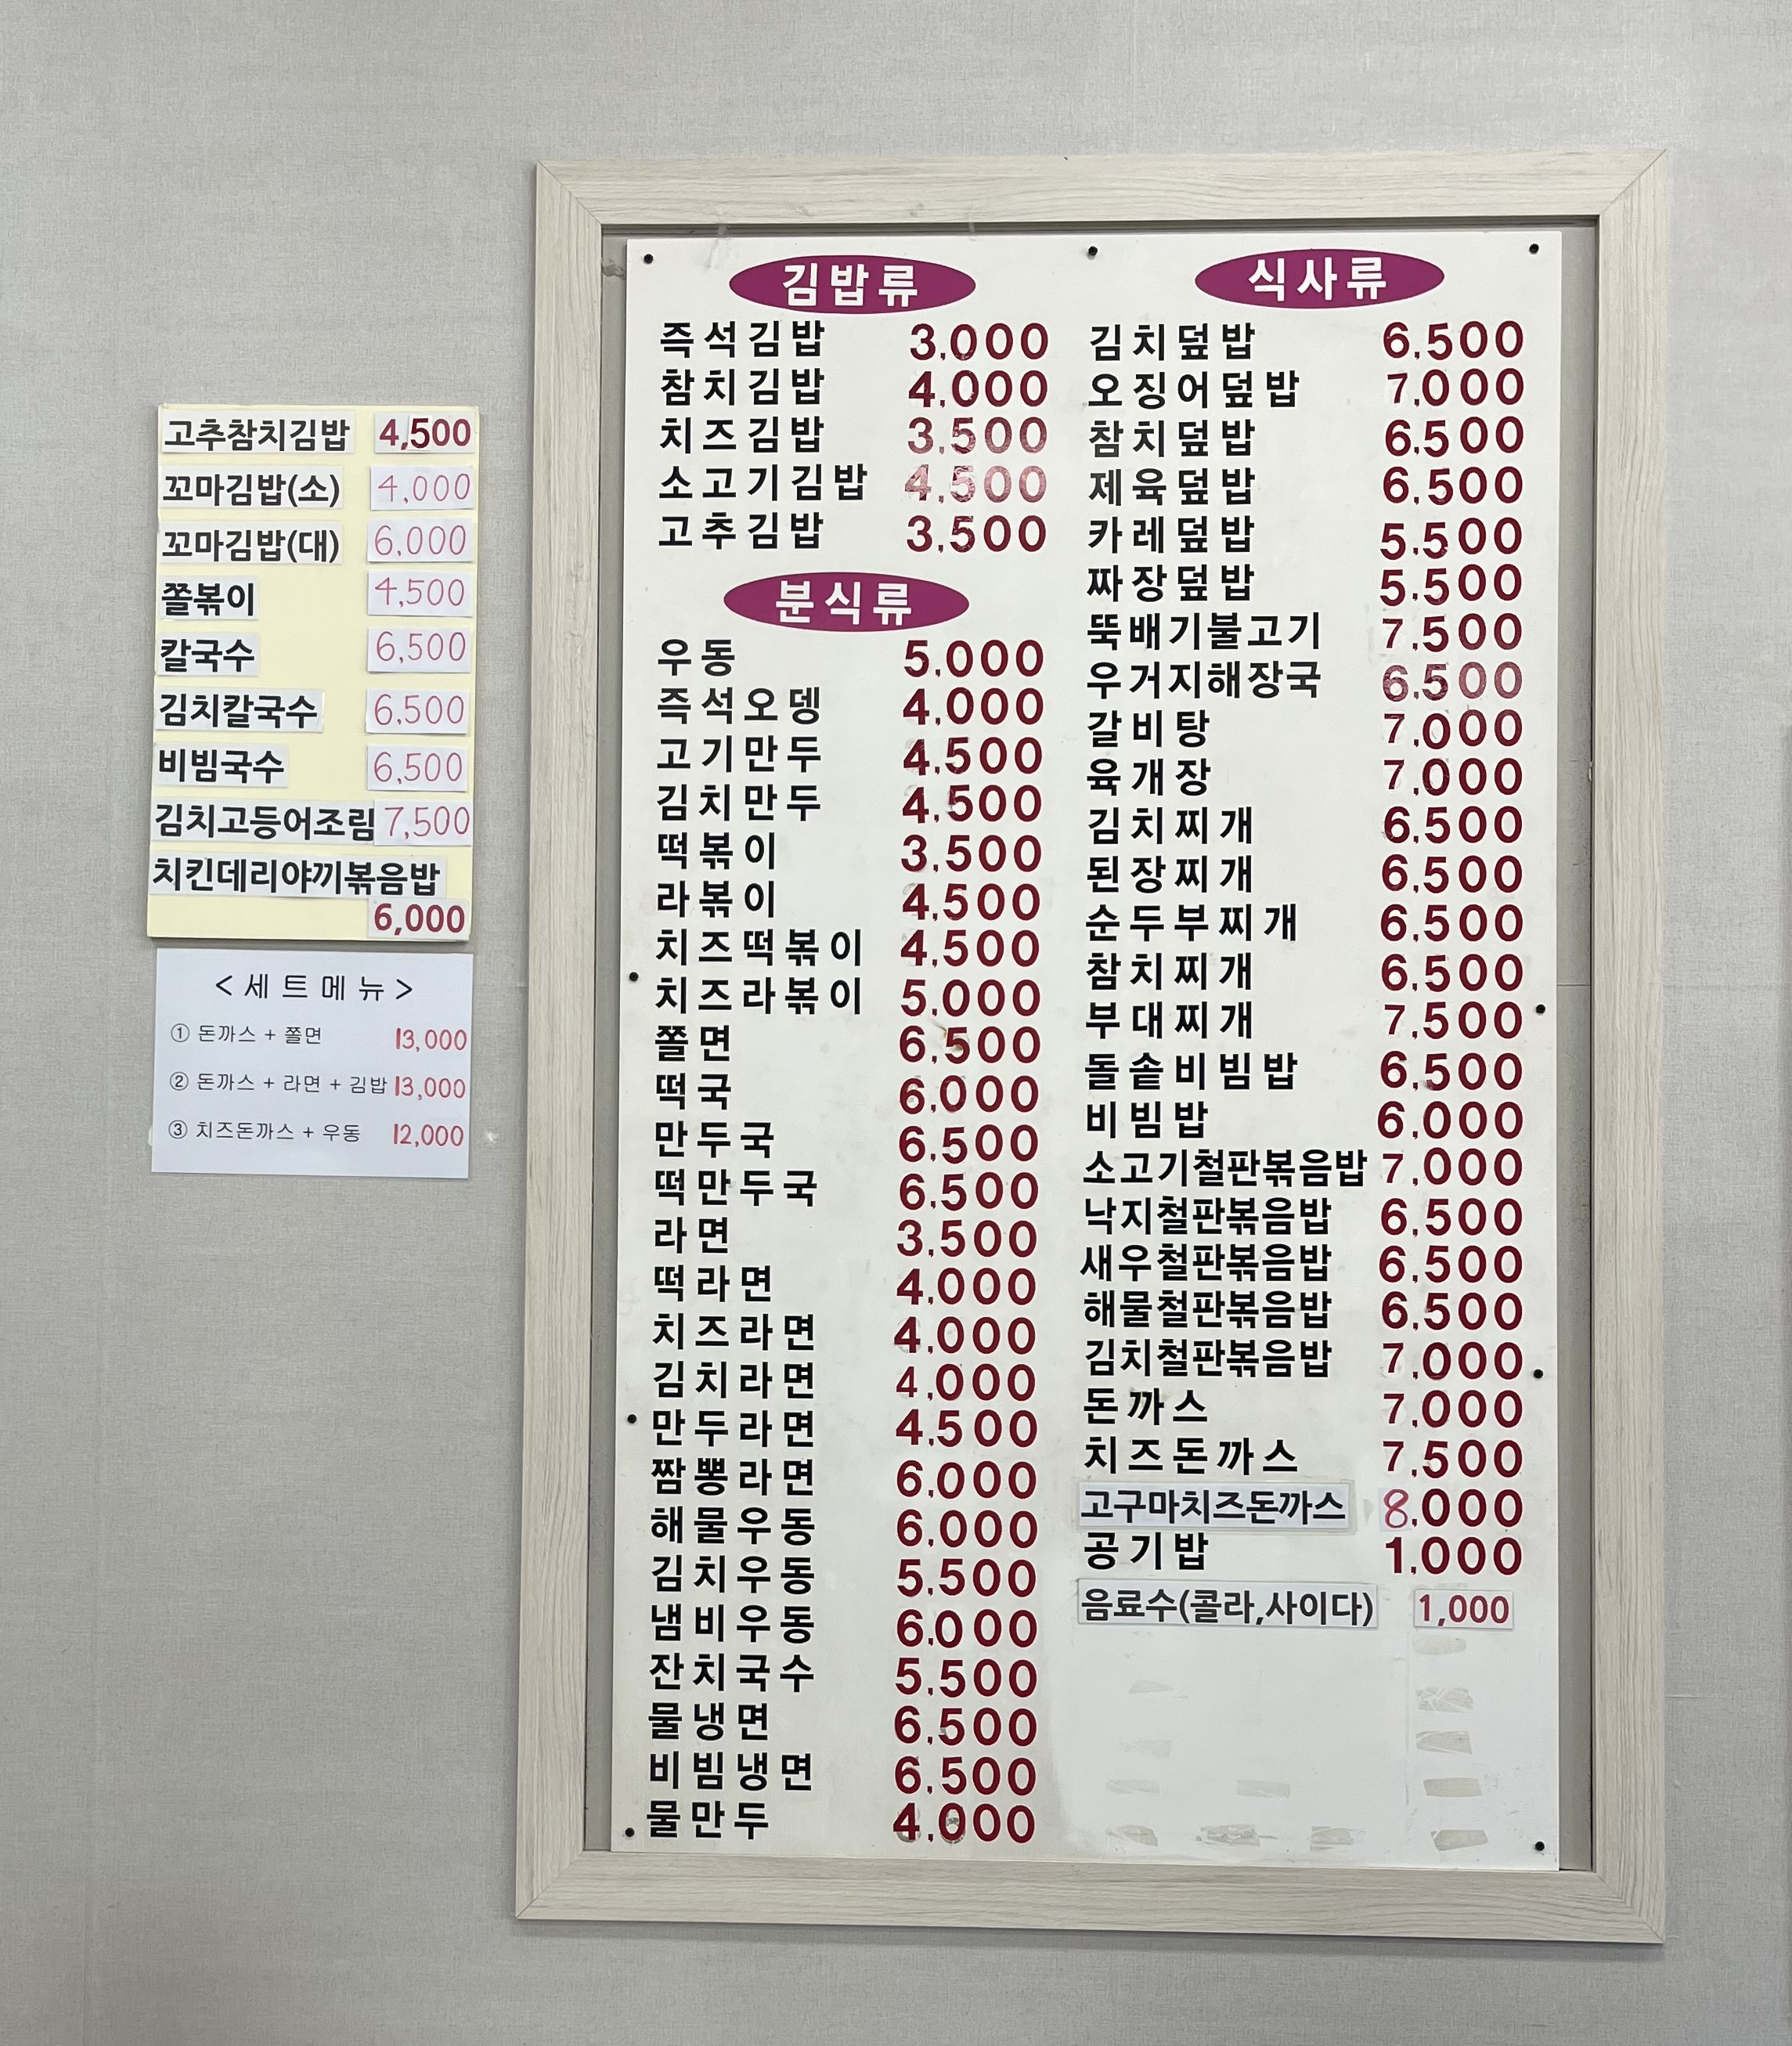 고추참치김밥 4,500
꼬마김밥(소) 4,000
꼬마김밥(대) 6,000
쫄볶이 4,500
칼국수 6,500
김치칼국수 6,500
비빔국수 6,500
김치고등어조림 7,500
치킨데리야끼볶음밥
6,000
<세트메뉴>
① 돈까스 + 쫄면 13,000
② 돈까스 + 라면 + 김밥 13,000
③ 치즈돈까스 + 우동 12,000
김밥류
즉석김밥 3,000
참치김밥 4,000
치즈김밥 3,500
소고기김밥 4,500
고추김밥 3,500
분식류
우동 5,000
즉석오뎅 4,000
고기만두 4,500
김치만두 4,500
떡볶이 3,500
라볶이 4,500
치즈떡볶이 4,500
치즈라볶이 5,000
쫄면 6,500
떡국 6,000
만두국 6,500
떡만두국 6,500
라면 3,500
떡라면 4,000
치즈라면 4,000
김치라면 4,000
만두라면 4,500
짬뽕라면 6,000
해물우동 6,000
김치우동 5,500
냄비우동 6,000
잔치국수 5,500
물냉면 6,500
비빔냉면 6,500
물만두 4,000
식사류
김치덮밥 6,500
오징어덮밥 7,000
참치덮밥 6,500
제육덮밥 6,500
카레덮밥 5,500
짜장덮밥 5,500
뚝배기불고기 7,500
우거지해장국 6,500
갈비탕 7,000
육개장 7,000
김치찌개 6,500
된장찌개 6,500
순두부찌개 6,500
참치찌개 6,500
부대찌개 7,500
돌솥비빔밥 6,500
비빔밥 6,000
소고기철판볶음밥 7,000
낙지철판볶음밥 6,500
새우철판볶음밥 6,500
해물철판볶음밥 6,500
김치철판볶음밥 7,000
돈까스 7,000
치즈돈까스 7,500
고구마치즈돈까스 8,000
공기밥 1,000
음료수(콜라,사이다) 1,000